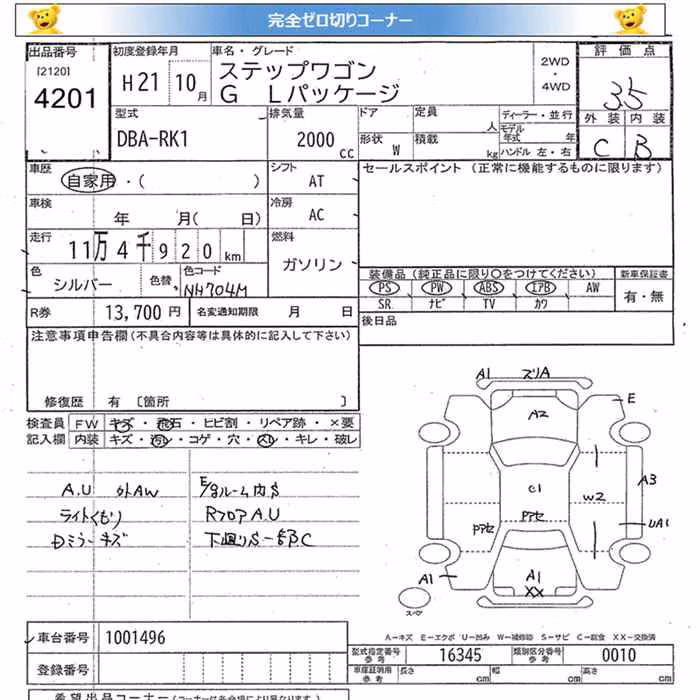 完全ゼロ切りコーナー
出品番号
[2120]
4201
初度登録年月
H21 10月
車名・グレード
ステップワゴン
G Lパッケージ
2WD
・
4WD
評価点
3.5
外装 内装
C B
型式
DBA-RK1
排気量
2000 cc
ドア
形状 W
定員 人
積載 kg
ディーラー・並行
モデル年式 年
ハンドル 左・右
車歴
自家用・( )
シフト
AT
セールスポイント (正常に機能するものに限ります)
車検
年 月( 日)
冷房
AC
走行
11万4千920km
燃料
ガソリン
色
シルバー
色替
色コード
NH704M
装備品 (純正品に限り○をつけてください)
PS PW ABS エアB AW
SR ナビ TV カワ
新車保証書
有・無
R券 13,700円
名変通知期限 月 日
後日品
注意事項申告欄(不具合内容等は具体的に記入して下さい)
修復歴 有 〔箇所 〕
検査員記入欄
FW キズ・飛石・ヒビ割・リペア跡・×要
内装 キズ・汚レ・コゲ・穴・スレ・キレ・破レ
A.U 外AW
ライトくもり
Dミラーキズ
E/gルーム内S
RフロアA.U
下廻りS一部C
A1 ズリA
A2
E
C1
W2
A3
PPアセ
PPアセ
UA1
A1
A1
XX
スペア
A-キズ E-エクボ U-凹み W-補修跡 S-サビ C-腐食 XX-交換済
車台番号 1001496
登録番号
型式指定番号 参考 16345
類別区分番号 参考 0010
車庫証明用 参考 長さ cm 幅 cm 高さ cm
希望出品コーナー